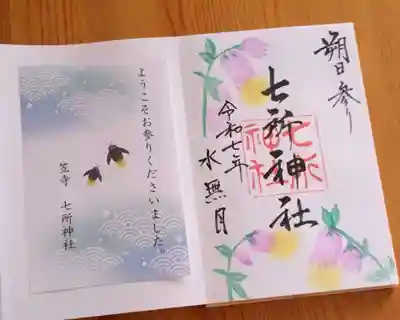 朔日参り
七所神社
七所神社
令和七年
水無月
ようこそお参りくださいました。
笠寺 七所神社